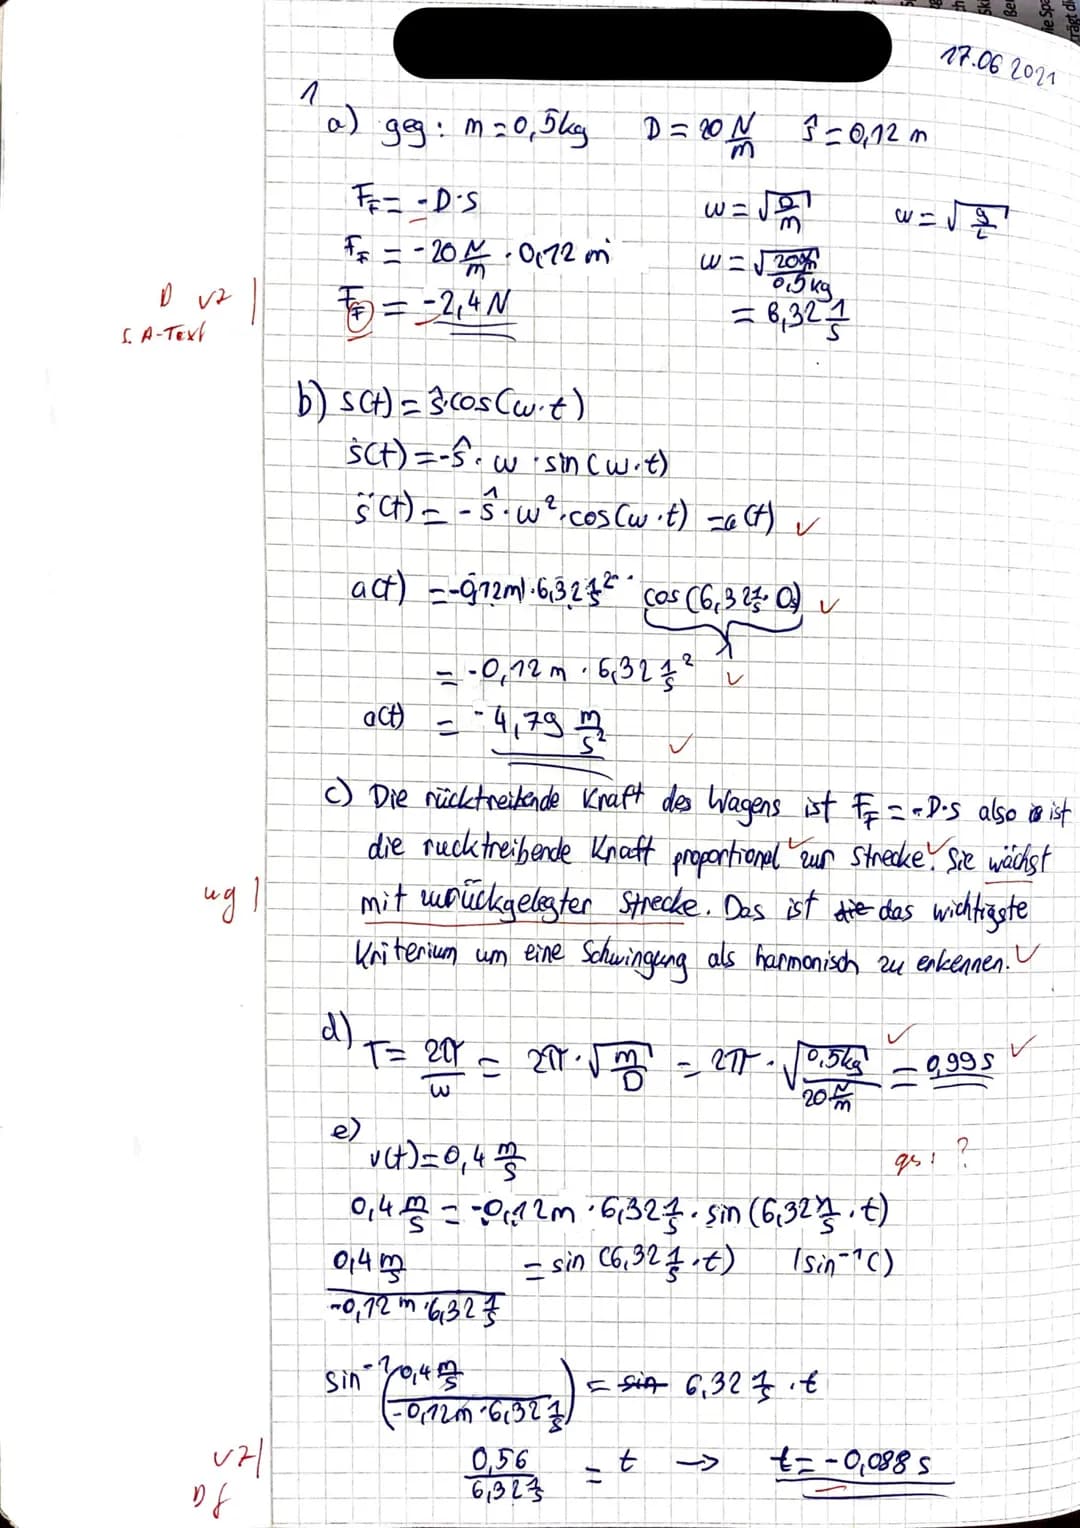 17.06 2021
1
a) geg: m = 0,5kg D = 20 N/m ŝ = 0,12 m
F_F = -D·s ω = √(D/m) ω = √(g/L)
F_F = -20 N/m · 0,12 m ω = √(20 N/m / 0,5kg)
D vz | F_F = -2,4 N = 6,32 1/s
s. A-Text
b) s(t) = ŝ·cos(ω·t)
ṡ(t) = -ŝ · ω · sin(ω·t)
s̈(t) = -ŝ · ω² · cos(ω·t) = a(t) ✓
a(t) = -0,12m · 6,32 1/s² · cos(6,32 1/s · 0s) ✓
1
= -0,12 m · 6,32 1/s² ✓
a(t) = -4,79 m/s² ✓
c) Die rücktreibende Kraft des Wagens ist F_F = -D·s also ist
die rucktreibende Kraft proportional ✓ zur Strecke ✓. Sie wächst
ug | mit zurückgelegter Strecke. Das ist die das wichtigste
Kriterium um eine Schwingung als harmonisch zu erkennen. ✓
d) T = 2π/ω = 2π · √(m/D) = 2π · √(0,5kg / 20 N/m) ✓ = 0,99 s ✓
e)
v(t) = 0,4 m/s gs: ?
0,4 m/s = -0,12m · 6,32 1/s · sin(6,32 1/s · t)
0,4 m/s / -0,12 m · 6,32 1/s = sin (6,32 1/s · t) | sin⁻¹()
sin⁻¹(0,4 m/s / -0,12m · 6,32 1/s) = sin 6,32 1/s · t
vz | 0,56 / 6,32 1/s = t → t = -0,088 s
Df